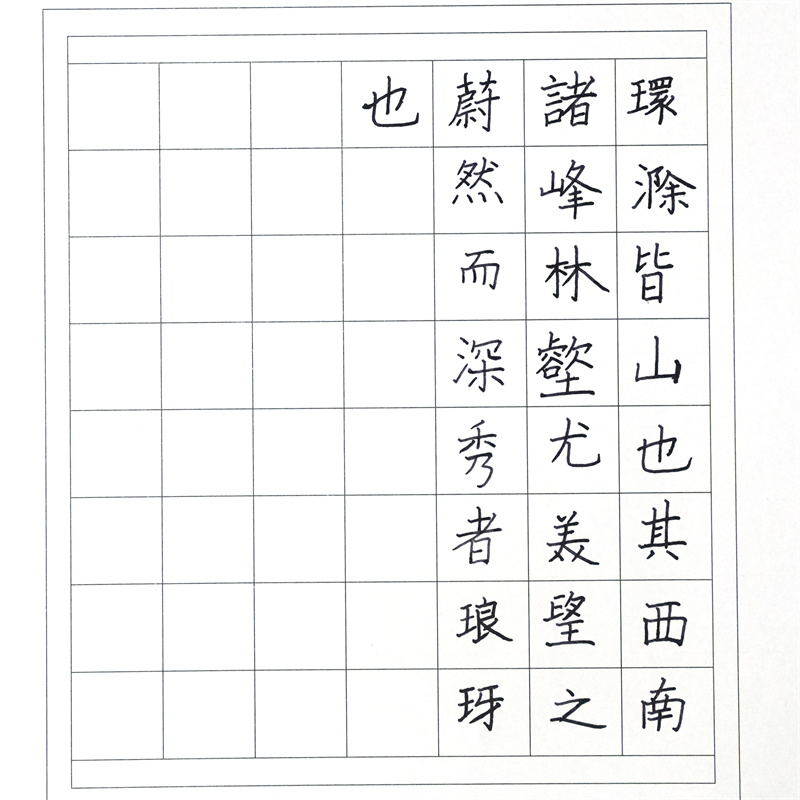 環滁皆山也其西南
諸峰林壑尤美望之
蔚然而深秀者琅玡
也